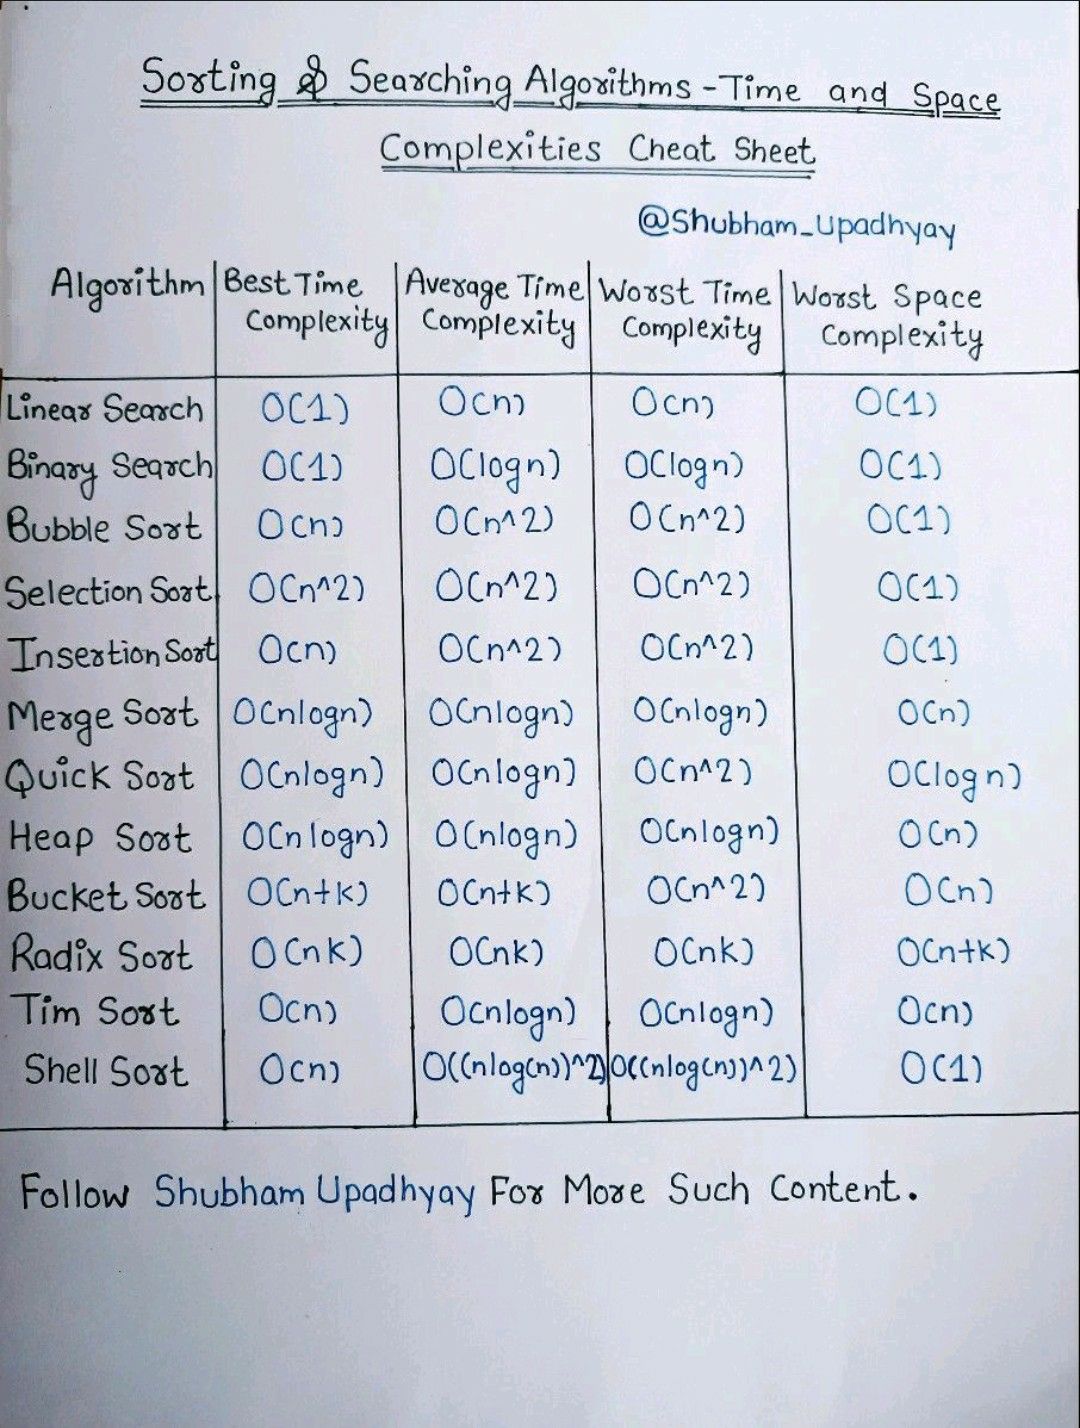 Sorting & Searching Algorithms - Time and Space
Complexities Cheat Sheet
@Shubham_Upadhyay
Algorithm Best Time Complexity Average Time Complexity Worst Time Complexity Worst Space Complexity
Linear Search O(1) O(n) O(n) O(1)
Binary Search O(1) O(logn) O(logn) O(1)
Bubble Sort O(n) O(n^2) O(n^2) O(1)
Selection Sort O(n^2) O(n^2) O(n^2) O(1)
Insertion Sort O(n) O(n^2) O(n^2) O(1)
Merge Sort O(nlogn) O(nlogn) O(nlogn) O(n)
Quick Sort O(nlogn) O(nlogn) O(n^2) O(logn)
Heap Sort O(nlogn) O(nlogn) O(nlogn) O(n)
Bucket Sort O(n+k) O(n+k) O(n^2) O(n)
Radix Sort O(nk) O(nk) O(nk) O(n+k)
Tim Sort O(n) O(nlogn) O(nlogn) O(n)
Shell Sort O(n) O((nlog(n))^2) O((nlog(n))^2) O(1)
Follow Shubham Upadhyay For More Such Content.